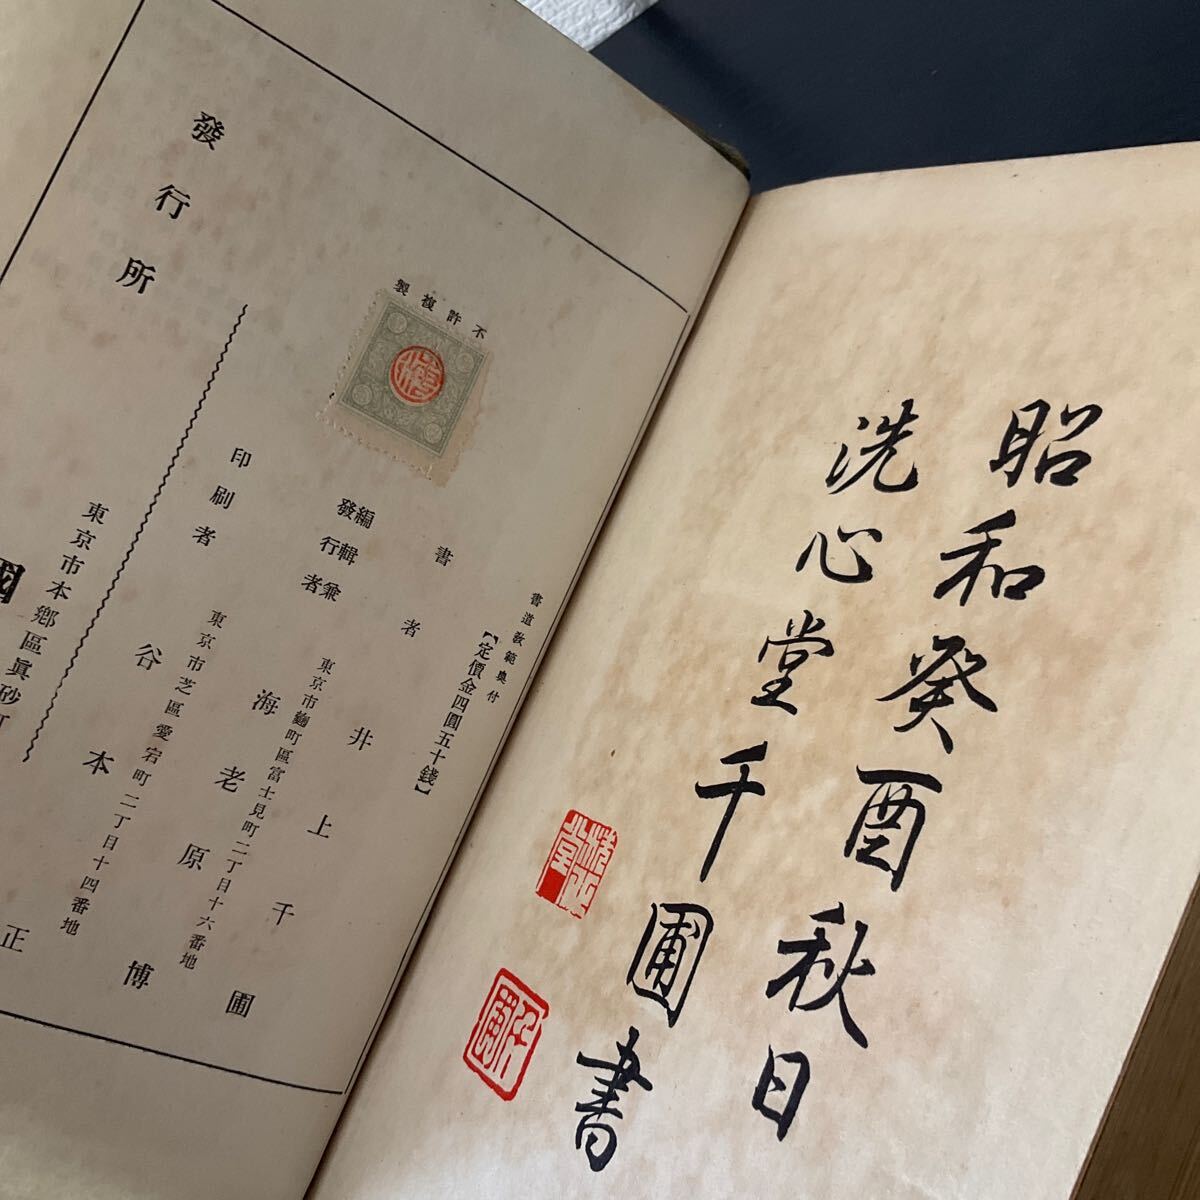 昭和癸酉秋日
洗心堂千圃書
書道教範奥付
【定價金四圓五十錢】
不許複製
書者 井上千圃
編輯兼
發行者
東京市麴町區富士見町二丁目十六番地
海老原
東京市芝區愛宕町二丁目十四番地
印刷者 谷本正
東京市本鄕區眞砂町
發行所